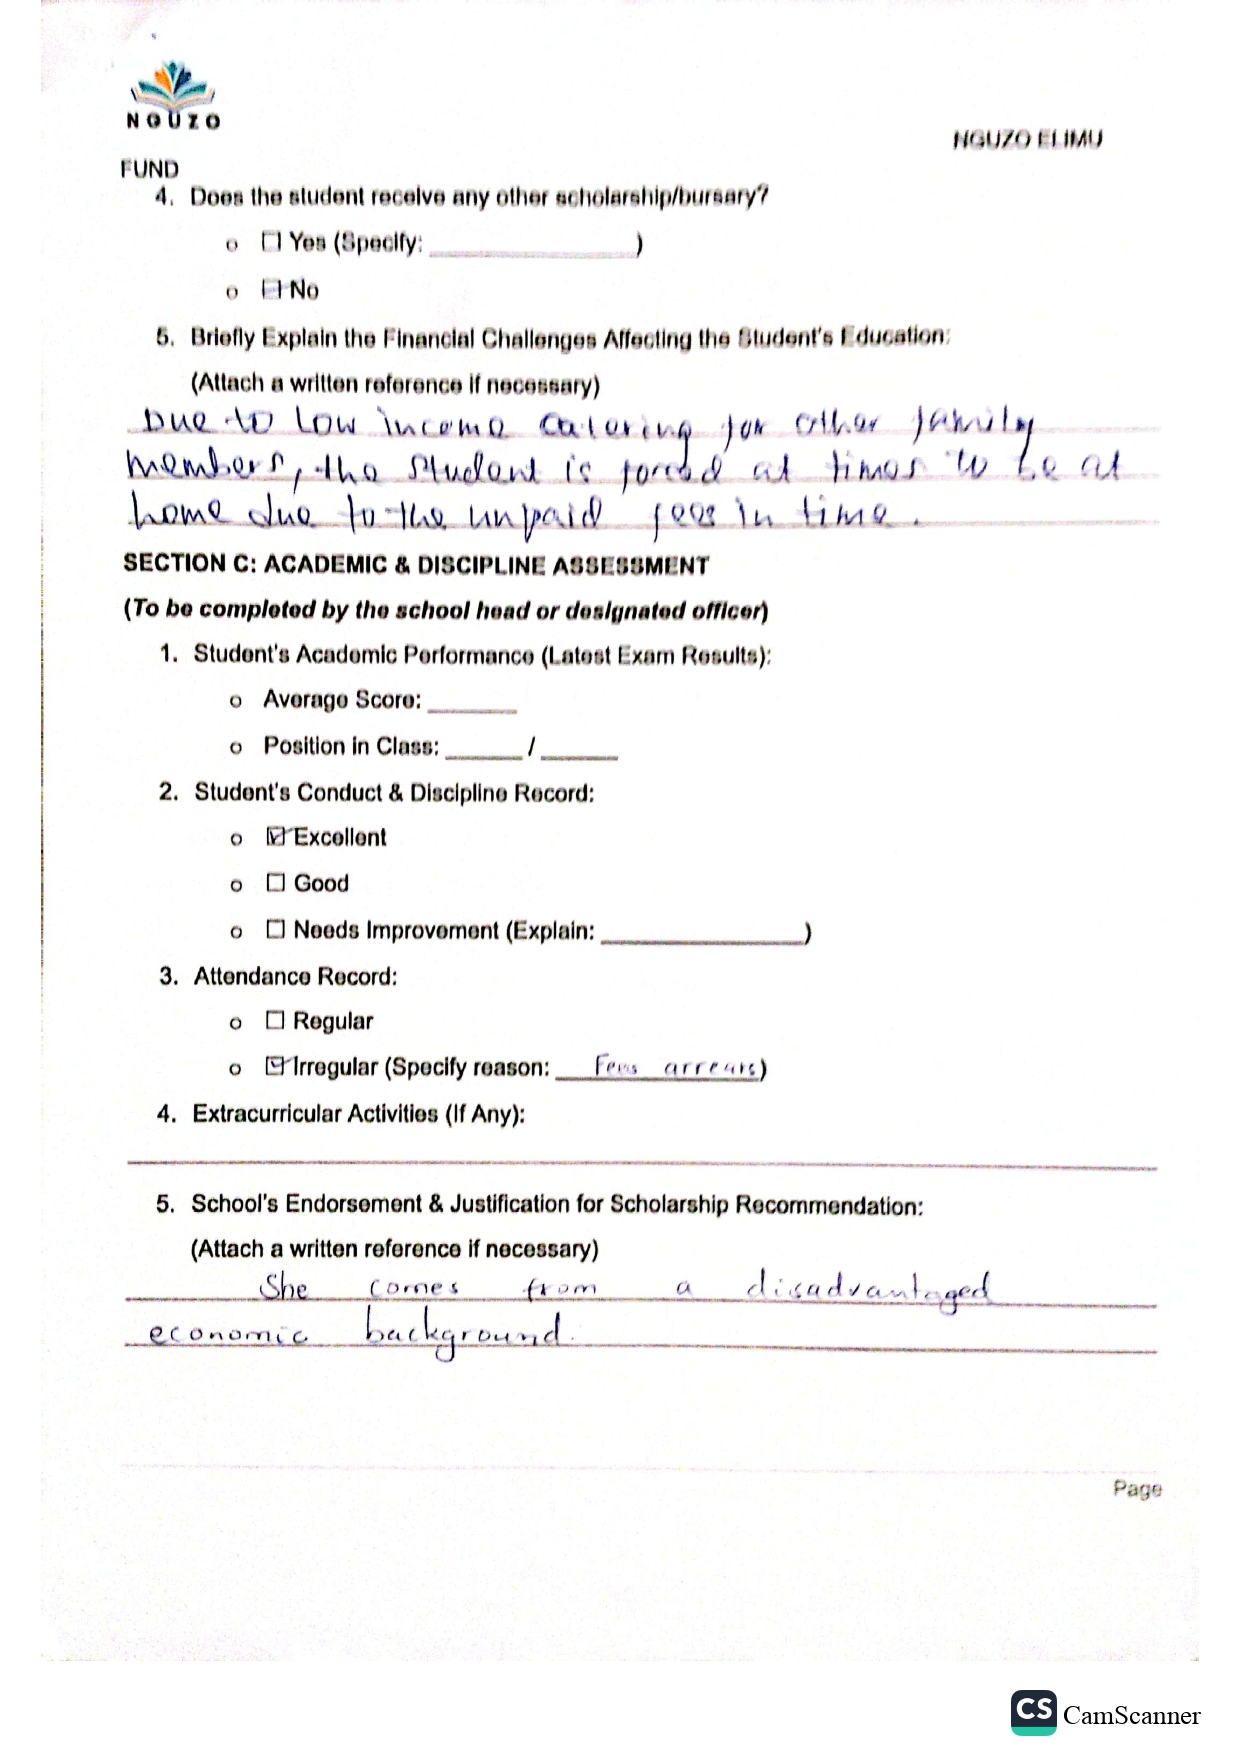 NGUZO
NGUZO ELIMU
FUND
4. Does the student receive any other scholarship/bursary?
o ☐ Yes (Specify: _______________)
o ☐ No
5. Briefly Explain the Financial Challenges Affecting the Student's Education:
(Attach a written reference if necessary)
Due to low income catering for other family
members, the student is forced at times to be at
home due to the unpaid fees in time.
SECTION C: ACADEMIC & DISCIPLINE ASSESSMENT
(To be completed by the school head or designated officer)
1. Student's Academic Performance (Latest Exam Results):
o Average Score: _______
o Position in Class: ______ / ______
2. Student's Conduct & Discipline Record:
o ☑ Excellent
o ☐ Good
o ☐ Needs Improvement (Explain: _______________)
3. Attendance Record:
o ☐ Regular
o ☑ Irregular (Specify reason: Fees arrears)
4. Extracurricular Activities (If Any):
5. School's Endorsement & Justification for Scholarship Recommendation:
(Attach a written reference if necessary)
She comes from a disadvantaged
economic background.
Page
CS CamScanner